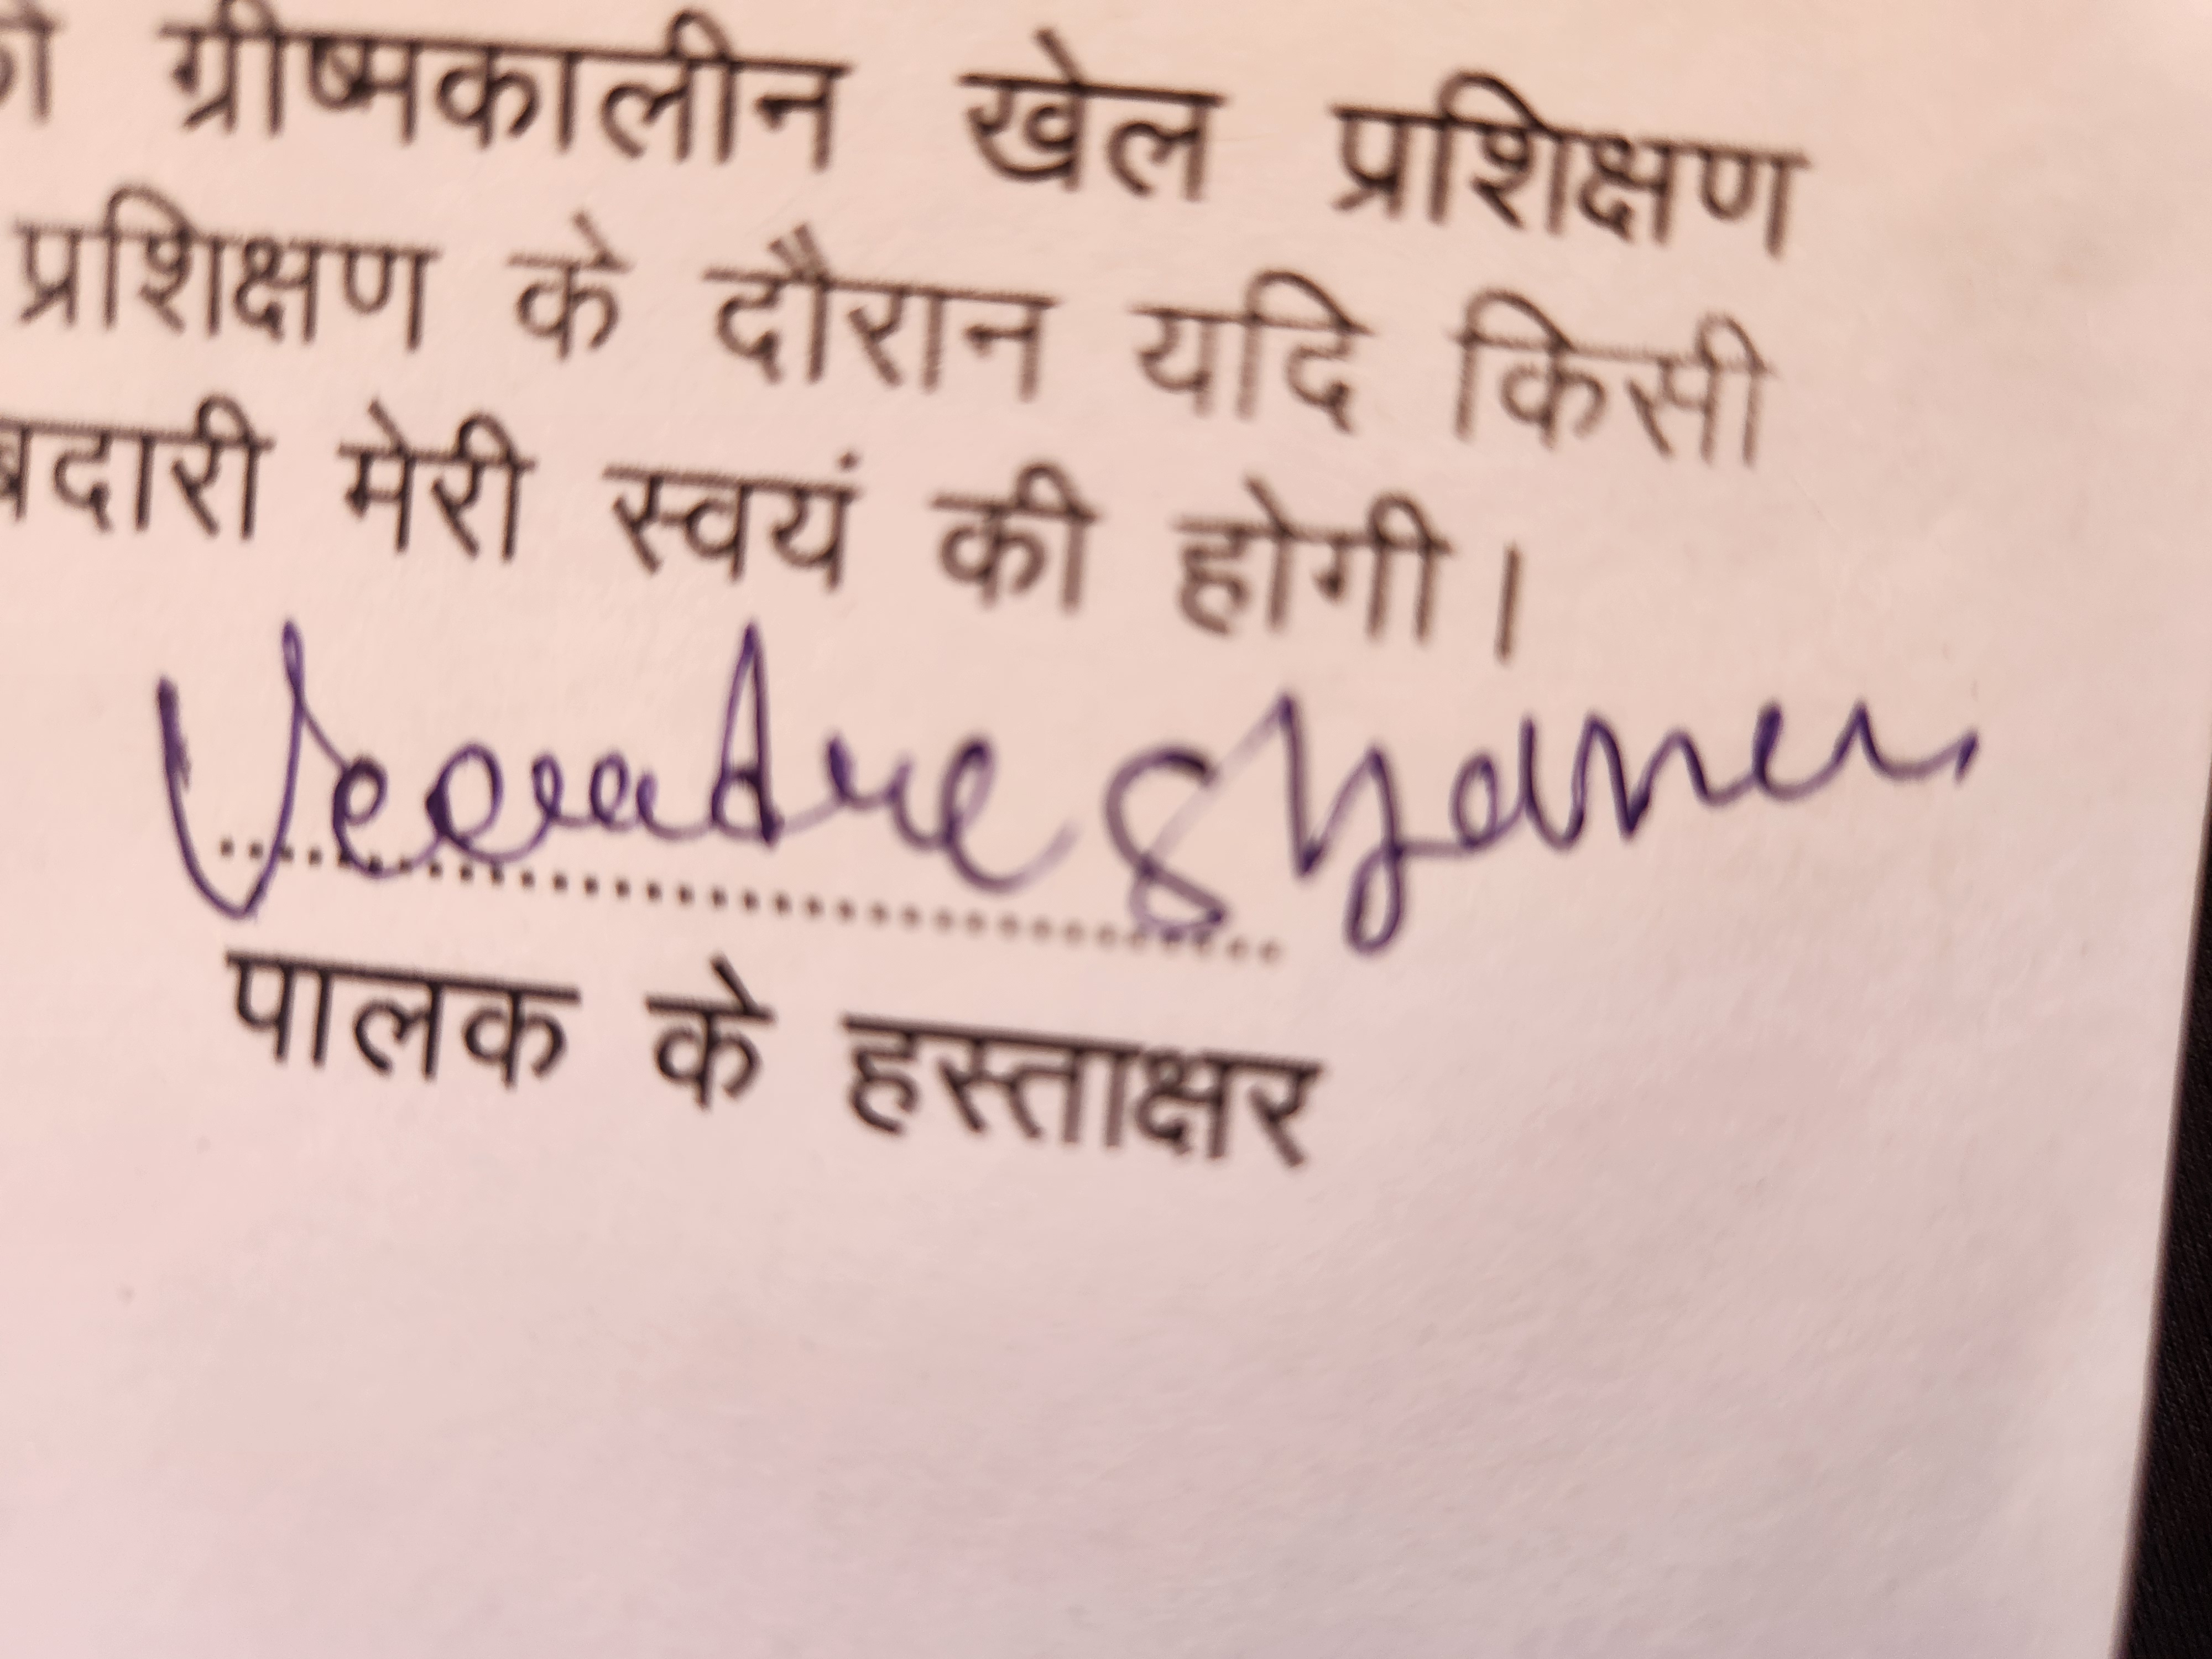 ग्रीष्मकालीन खेल प्रशिक्षण
प्रशिक्षण के दौरान यदि किसी
बदारी मेरी स्वयं की होगी।
पालक के हस्ताक्षर